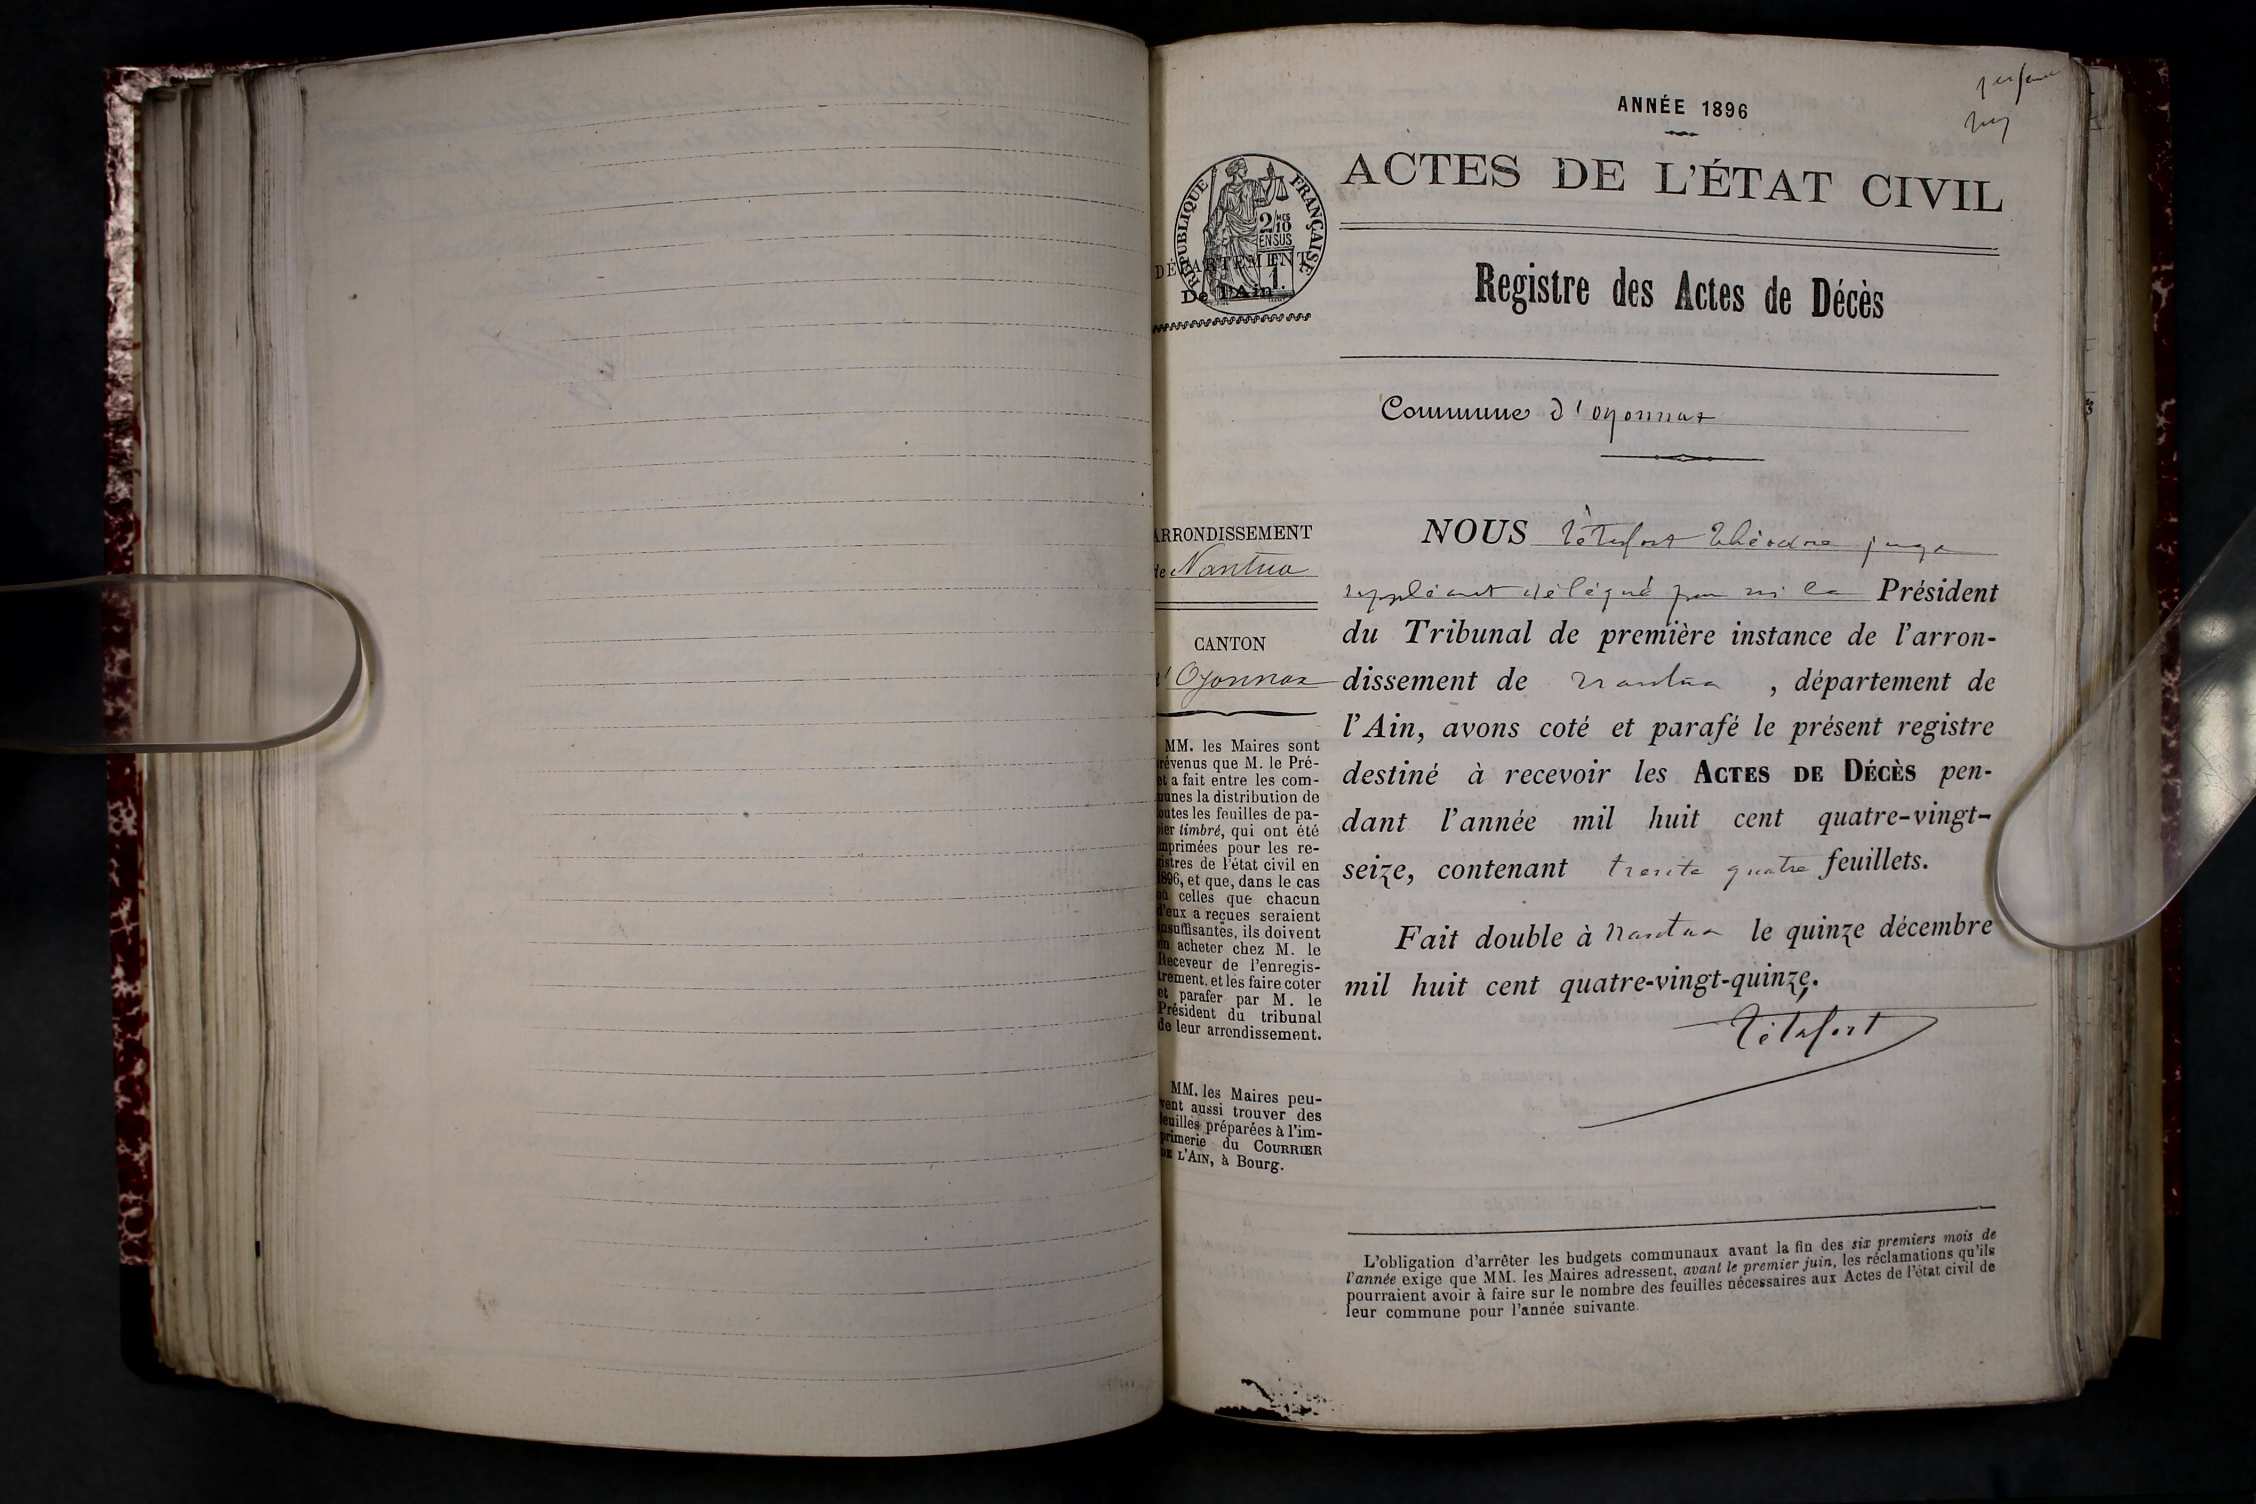 ANNÉE 1896
ACTES DE L'ÉTAT CIVIL
RÉPUBLIQUE FRANÇAISE
2/10
EN SUS
DÉPARTEMENT
De l'Ain
Registre des Actes de Décès
Commune d'oyonnax
ARRONDISSEMENT
de Nantua
CANTON
d'Oyonnax
MM. les Maires sont
prévenus que M. le Pré-
et a fait entre les com-
munes la distribution de
toutes les feuilles de pa-
pier timbré, qui ont été
imprimées pour les re-
gistres de l'état civil en
1896, et que, dans le cas
où celles que chacun
d'eux a reçues seraient
insuffisantes, ils doivent
en acheter chez M. le
Receveur de l'enregis-
trement, et les faire coter
et parafer par M. le
Président du tribunal
de leur arrondissement.
MM. les Maires peu-
vent aussi trouver des
feuilles préparées à l'im-
primerie du COURRIER
DE L'AIN, à Bourg.
NOUS Tétafort Théodore juge
suppléant délégué par m le Président
du Tribunal de première instance de l'arron-
dissement de nantua , département de
l'Ain, avons coté et parafé le présent registre
destiné à recevoir les ACTES DE DÉCÈS pen-
dant l'année mil huit cent quatre-vingt-
seize, contenant trente quatre feuillets.
Fait double à nantua le quinze décembre
mil huit cent quatre-vingt-quinze.
Tétafort
L'obligation d'arrêter les budgets communaux avant la fin des six premiers mois de
l'année exige que MM. les Maires adressent, avant le premier juin, les réclamations qu'ils
pourraient avoir à faire sur le nombre des feuilles nécessaires aux Actes de l'état civil de
leur commune pour l'année suivante.